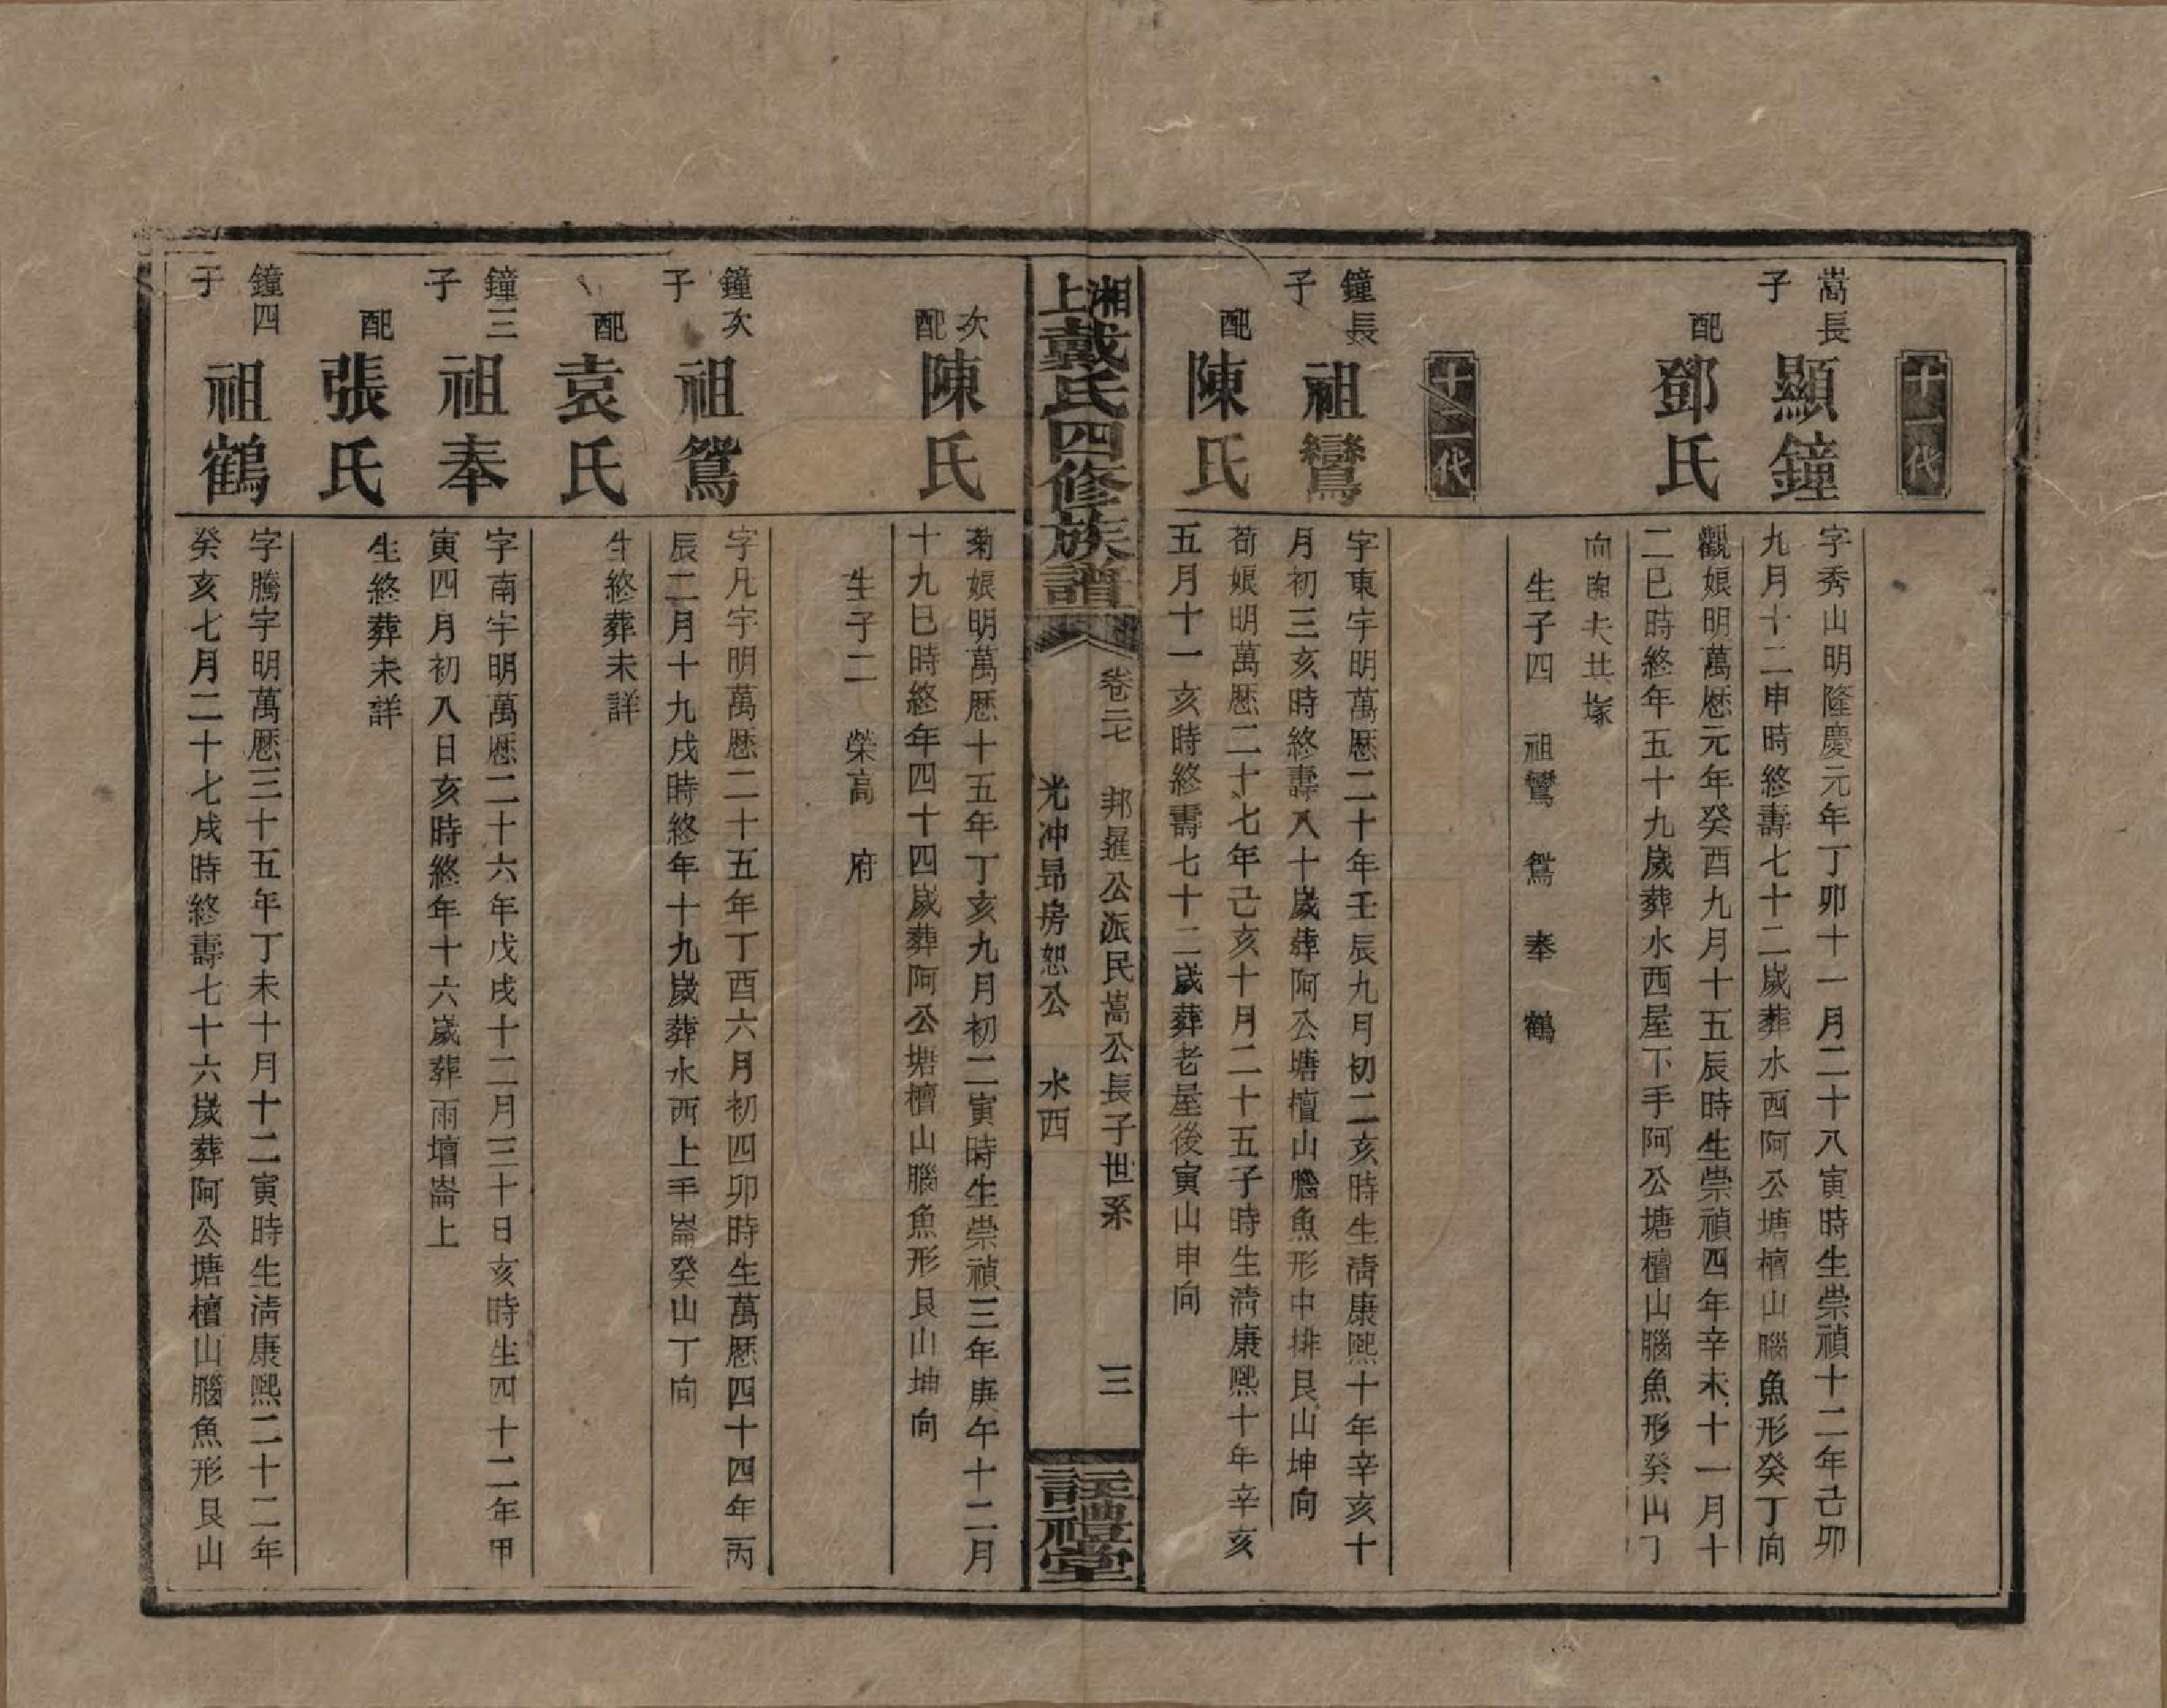 十一代
嵩長子
顯鐘
字秀山明隆慶元年丁卯十一月二十八寅時生崇禎十二年己卯
九月十二申時終壽七十二歲葬水西阿公塘檀山腦魚形癸丁向
配
鄧氏
觀娘明萬厯元年癸酉九月十五辰時生崇禎四年辛未十一月十
二巳時終年五十九歲葬水西屋下手阿公塘檀山腦魚形癸山丁
向與夫共塚
生子四 祖鸞 鴛 奉 鶴
十二代
鐘長子
祖鸞
字東宇明萬厯二十年壬辰九月初二亥時生淸康熙十年辛亥十
月初三亥時終壽八十歲葬阿公塘檀山腦魚形中排艮山坤向
配
陳氏
荀娘明萬厯二十七年己亥十月二十五子時生淸康熙十年辛亥
五月十一亥時終壽七十二歲葬老屋後寅山申向
湘上戴氏四修族譜
卷二七 邦暹公派民嵩公長子世系 三
光冲昻房恕公 水西
註禮堂
次配
陳氏
菊娘明萬厯十五年丁亥九月初二寅時生崇禎三年庚午十二月
十九巳時終年四十四歲葬阿公塘檀山腦魚形艮山坤向
生子二 榮高 府
鐘次子
祖鴛
字凡宇明萬厯二十五年丁酉六月初四卯時生萬厯四十四年丙
辰二月十九戌時終年十九歲葬水西上手崙癸山丁向
配
袁氏
生終葬未詳
鐘三子
祖奉
字南宇明萬厯二十六年戊戌十二月三十日亥時生四十二年甲
寅四月初八日亥時終年十六歲葬雨壇崙上
配
張氏
生終葬未詳
鐘四子
祖鶴
字騰宇明萬厯三十五年丁未十月十二寅時生淸康熙二十二年
癸亥七月二十七戌時終壽七十六歲葬阿公塘檀山腦魚形艮山